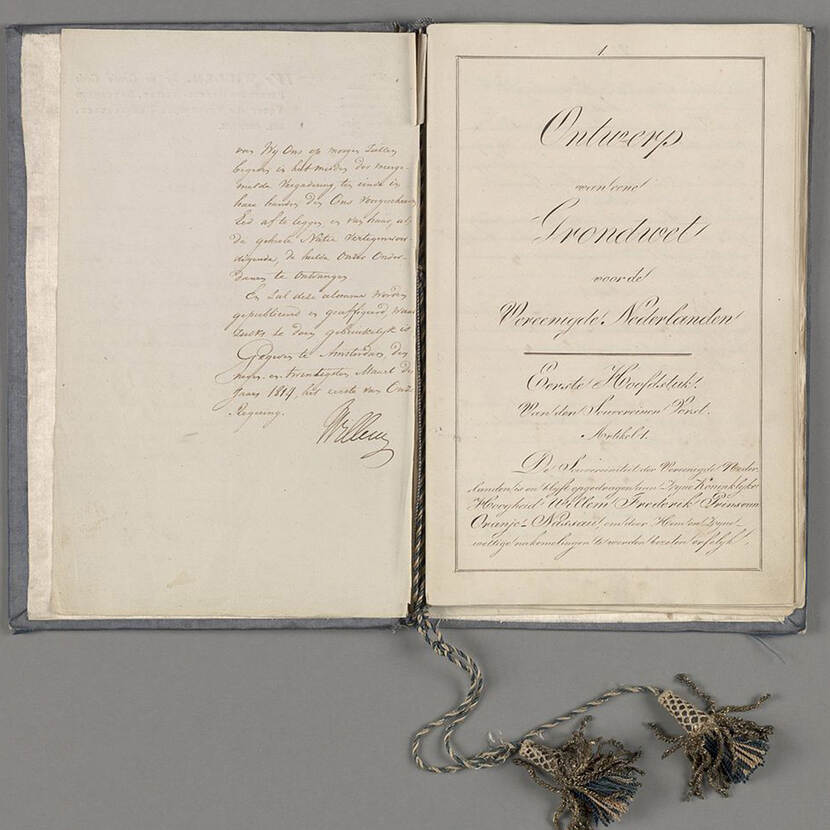 van Wij Ons op morgen zullen
begeven in het midden der meerge-
melde Vergadering ten einde in
hare handen den Ons voorgeschreven
Eed af te leggen en van haar, als
de geheele Natie vertegenwoor-
digende, de hulde Onzer Onder-
danen te ontvangen
En zal deze alomme worden
gepubliceerd en geaffigeerd, waar
zulks te doen gebruikelijk is
Gegeven te Amsterdam den
negen en twintigsten Maart des
Jaars 1814, het eerste van Onze
Regering.
Willem
1.
Ontwerp
van eene
Grondwet
voor de
Vereenigde Nederlanden
Eerste Hoofdstuk.
Van den Souvereinen Vorst.
Artikel 1.
De Souvereiniteit der Vereenigde Neder-
landen is en blijft opgedragen aan Zijne Koninklijke
Hoogheid Willem Frederik Prins van
Oranje-Nassau, om door Hem en Zijne
wettige nakomelingen te worden bezeten erfelijk,